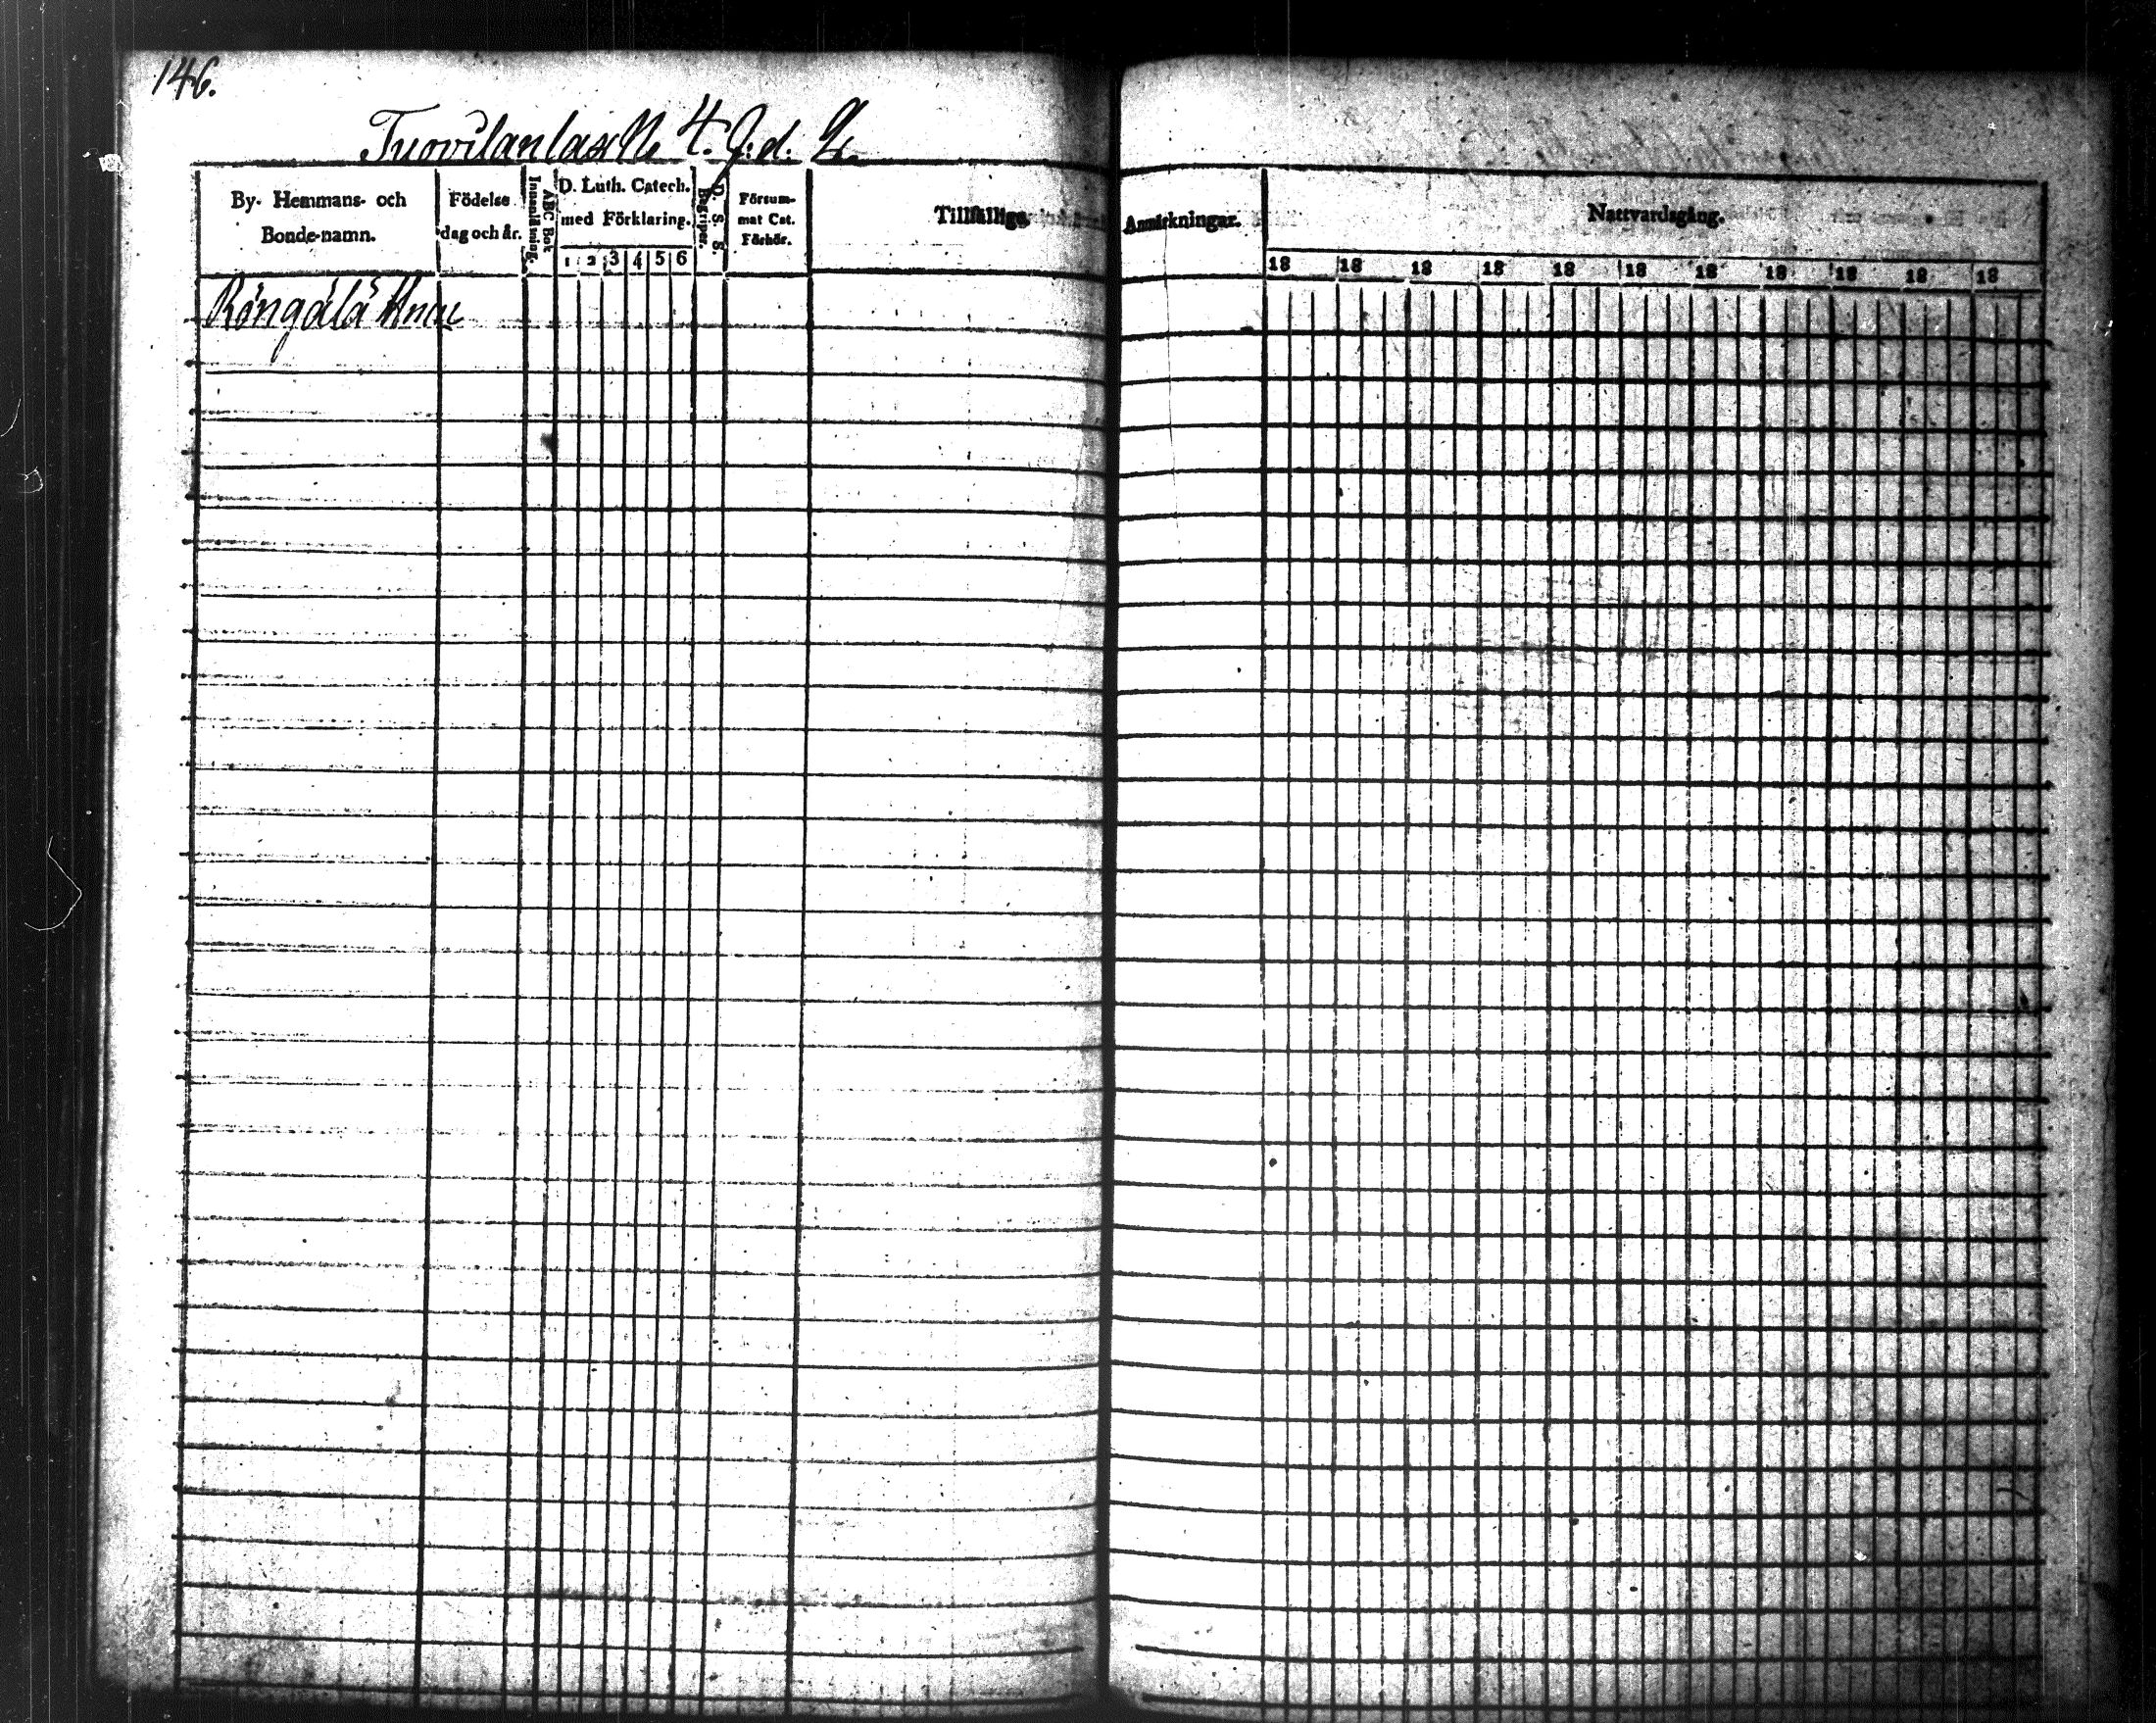 146.
Tuovilanlax N. 4. J. d.
By- Hemmans- och
Bonde-namn.
Födelse
dag och år.
ABC Bok
Innanläsning.
D. Luth. Catech.
med Förklaring.
1 2 3 4 5 6
D. S. S.
Begriper.
Försum-
mat Cat.
Förhör.
Tillfällige
Anmärkningar.
Nattvardsgång.
18 18 18 18 18 18 18 18 18 18 18